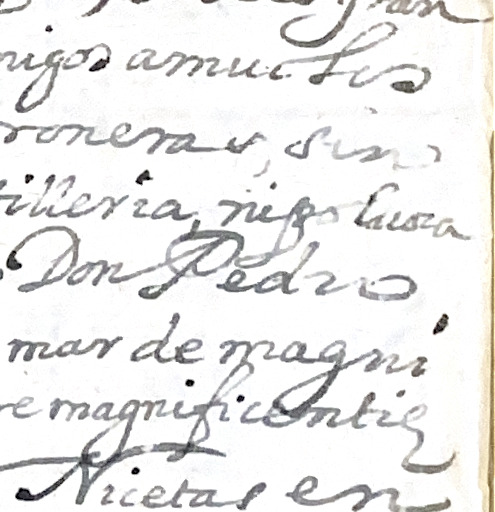 gran
nigos a muchos
troneras, sino
tilleria, ni
Don Pedro
mar de magni
re magnificentie
Nicetas en